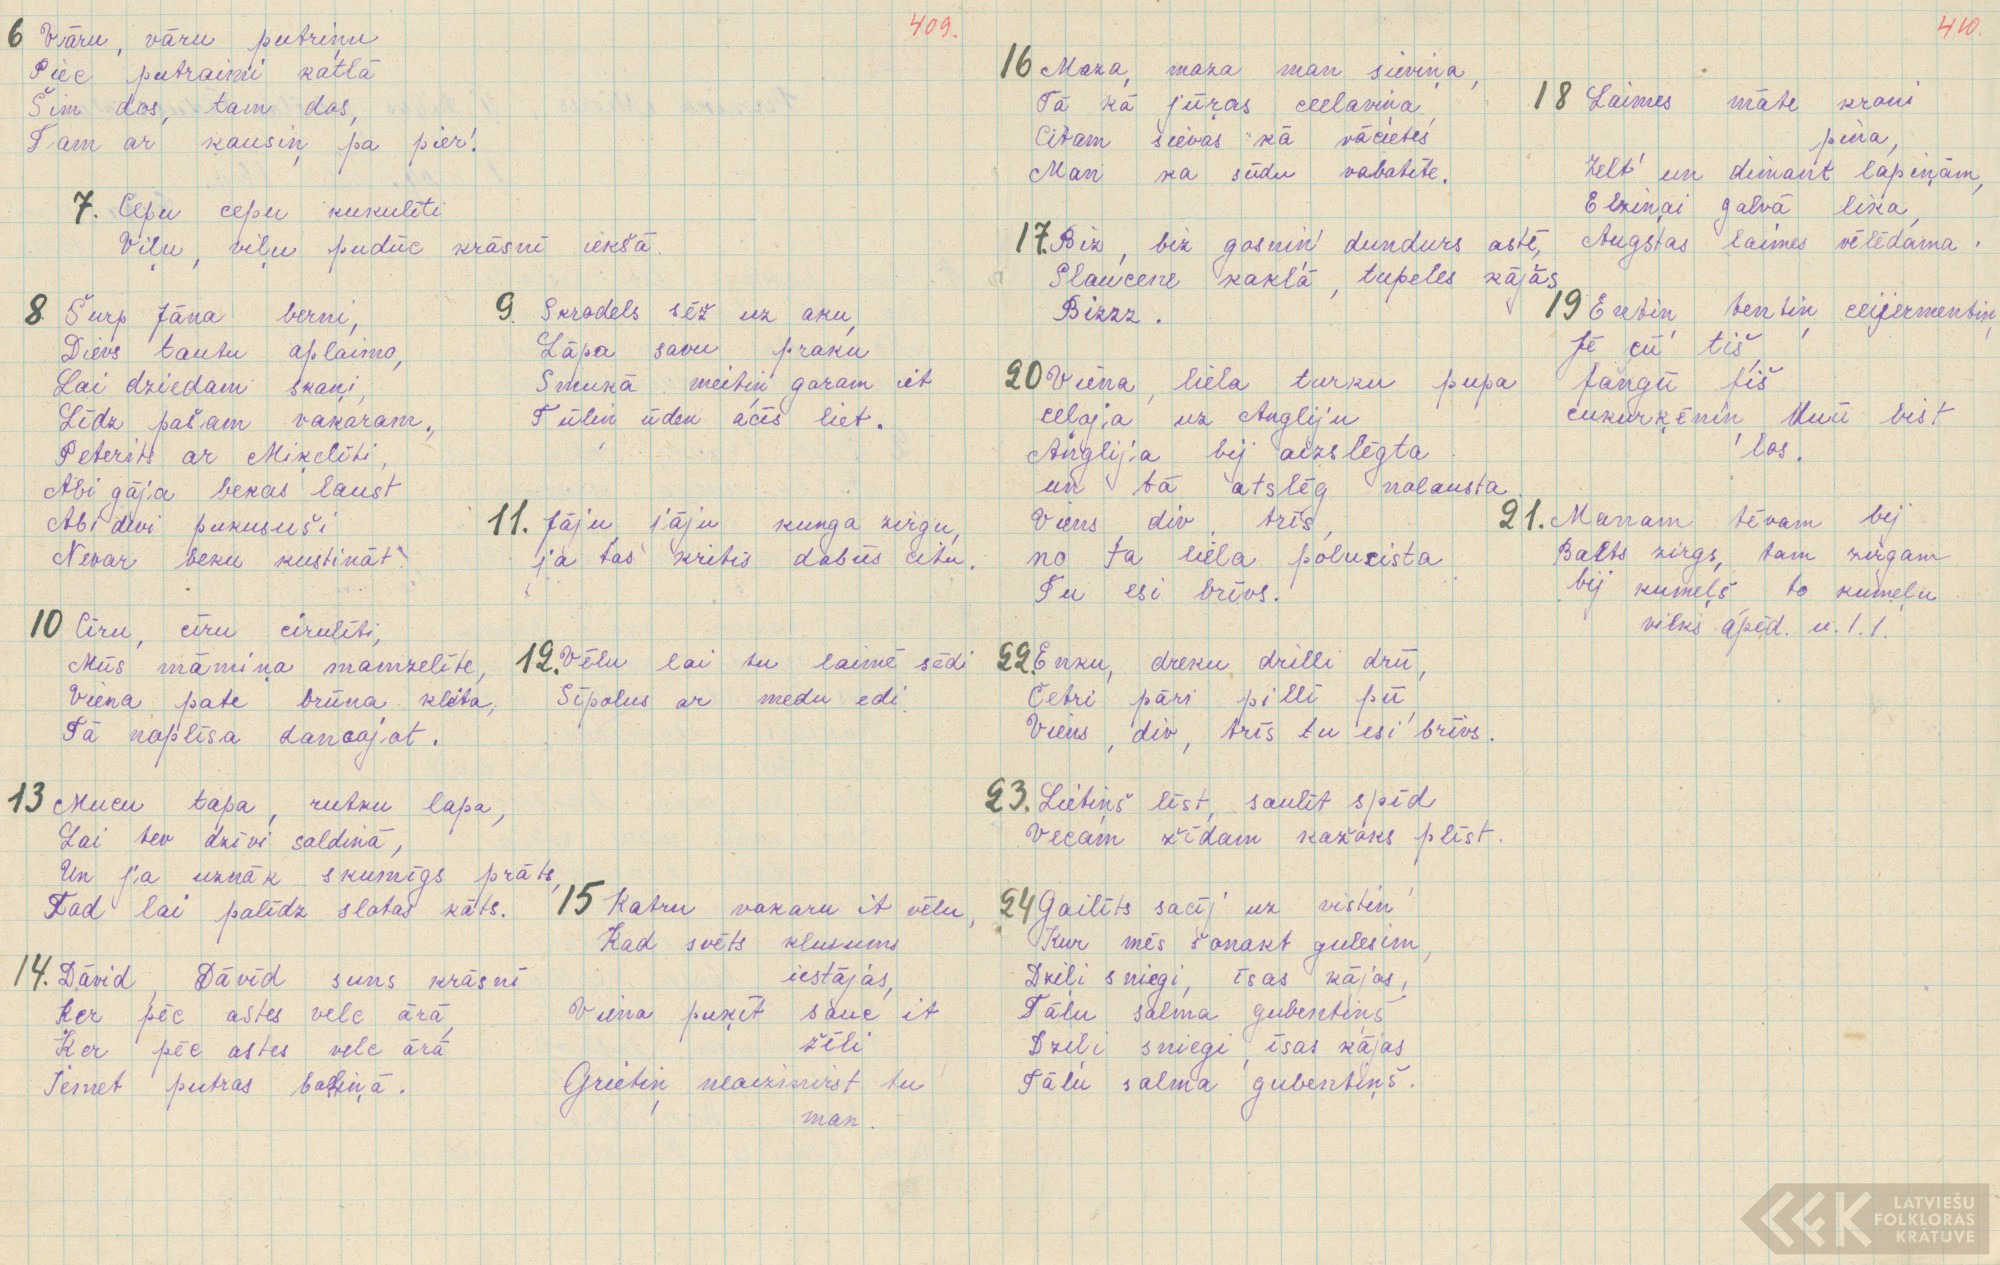 409.
6 Vāru, vāru putriņu
Piec putraimi katlā
Šim dos, tam dos,
Tam ar kausiņ pa pier'!
7. Cepu cepu kukulīti
Viļu, viļu pudūc krāsnī iekšā.
8 Šurp Jāna berni,
Dievs tautu aplaimo,
Lai dziedam skaņi,
Līdz pašam vakaram.,
Peterīts ar Miķelīti,
Abi gāja bekas laust
Abi divi pukusuši
Nevar beku kustināt!
9. Skrodels sēž uz aku,
Lāpa savu praku
Smukā meitiņ garam iet
Tūlin ūden ācīs liet.
10 Cīru, cīru cīrulīti,
Mūs māmiņa mamzelīte,
Viena pate brūna klēta,
Tā noplīsa dancojot.
11. Jāju, jāju kunga zirgu,
ja tas kritīs dabūs citu.
12. Vēlu lai tu laimē sēdi
Sīpolus ar medu edi.
13 Mucu tapa, rutku lapa,
Lai tev dzīvi saldinā,
Un ja uznāk skumīgs prāts,
Tad lai palīdz slotas kāts.
14. Dāvid, Dāvīd suns krāsnī
Ker pēc astes velc ārā,
Ker pēc astes velc ārā
Iemet putras baļļiņā.
15 Katru vakaru it vēlu,
Kad svēts klusums
iestājās,
Viena puķīt sauc it
žēli
Grietiņ neaizmirst tu
man.
410.
16 Maza, maza man sieviņa,
Tā kā jūŗas cielaviņa,
Citam sievas kā vācietes
Man ka sūdu vabatēte.
17. Biz, biz gosniņ' dundurs astē,
Slaucene kaklā, tupeles kājās
Bizzz.
18 Laimes māte kroni
pina,
Zelt' un dimant lapiņām,
Elziņai galvā lika,
Augstas laimes vēlēdama.
19 Entiņ, tentiņ, ceijermentiņ,
Jē cū tiš,
fangū tiš
cukurķēniņ Huū bist
los.
20 Viena, liela turku pupa
ceļoja uz Angliju
Anglija bij aizslēgta
un tā atslēg nolausta
Viens, div, trīs,
no ta liela polucista
Tu esi brīvs.
21. Manam tēvam bij
Balts zirgs, tam zirgam
bij kumeļš to kumeļu
vilks apēd. u.t.t.
22. Enku, dreku drilli drū,
Četri pāri pillī pū,
Viens, div, trīs tu esi brīvs.
23. Lietiņš līst, saulīt spīd
Vecam žīdam kažoks plīst.
24 Gailīts sacīj' uz vistiņ'
Kur mēs šonakt gulesim,
Dziļi sniegi, īsas kājas,
Tālu salma gubentiņš
Dziļi sniegi, īsas kājas
Tālu salma gubentiņš.
LATVIEŠU
FOLKLORAS
KRĀTUVE